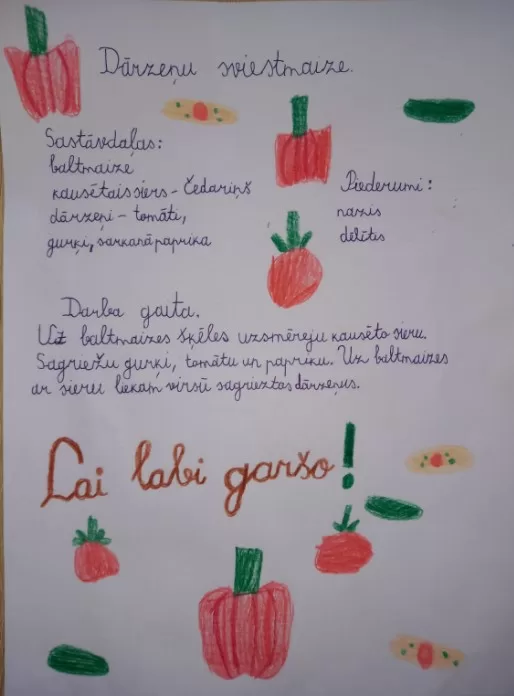 Dārzeņu sviestmaize.
Sastāvdaļas:
baltmaize
kausētais siers - Čedariņš
dārzeņi - tomāti,
gurķi, sarkanā paprika
Piederumi:
nazis
dēlītis
Darba gaita.
Uz baltmaizes šķēles uzsmērēju kausēto sieru.
Sagriežu gurķi, tomātu un papriku. Uz baltmaizes
ar sieru liekam virsū sagrieztos dārzeņus.
Lai labi garšo!